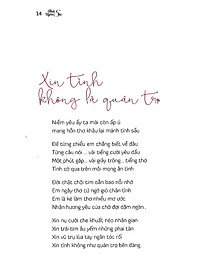 14
Xin tình
không là quán trọ
Niềm yêu ấy ta mãi còn ấp ủ
mang hồn thơ khâu lại mảnh tình sầu
Để từng chiều em chẳng biết về đâu
Từng câu nói ... vài tiếng cười yêu dấu
Một phút gặp... vài giây trông.. tiếng thở
Tình cờ qua trên mỗi mọng ân tình
Đời chật chội tìm cần bao nỗi nhớ
Em ngây thơ cứ ngỡ giỏ chân tình
Em là kẻ làm thơ nhiều mơ ước
Nhân hương yêu của chờ đợi đắm ngàn..
Xin nụ cười che khuất nẻo nhân gian
Xin trái tim ấu yếm những phai tàn
Xin vũ trụ lùa tay ngăn tóc rối
Xin tình không như quán trọ bên đàng.